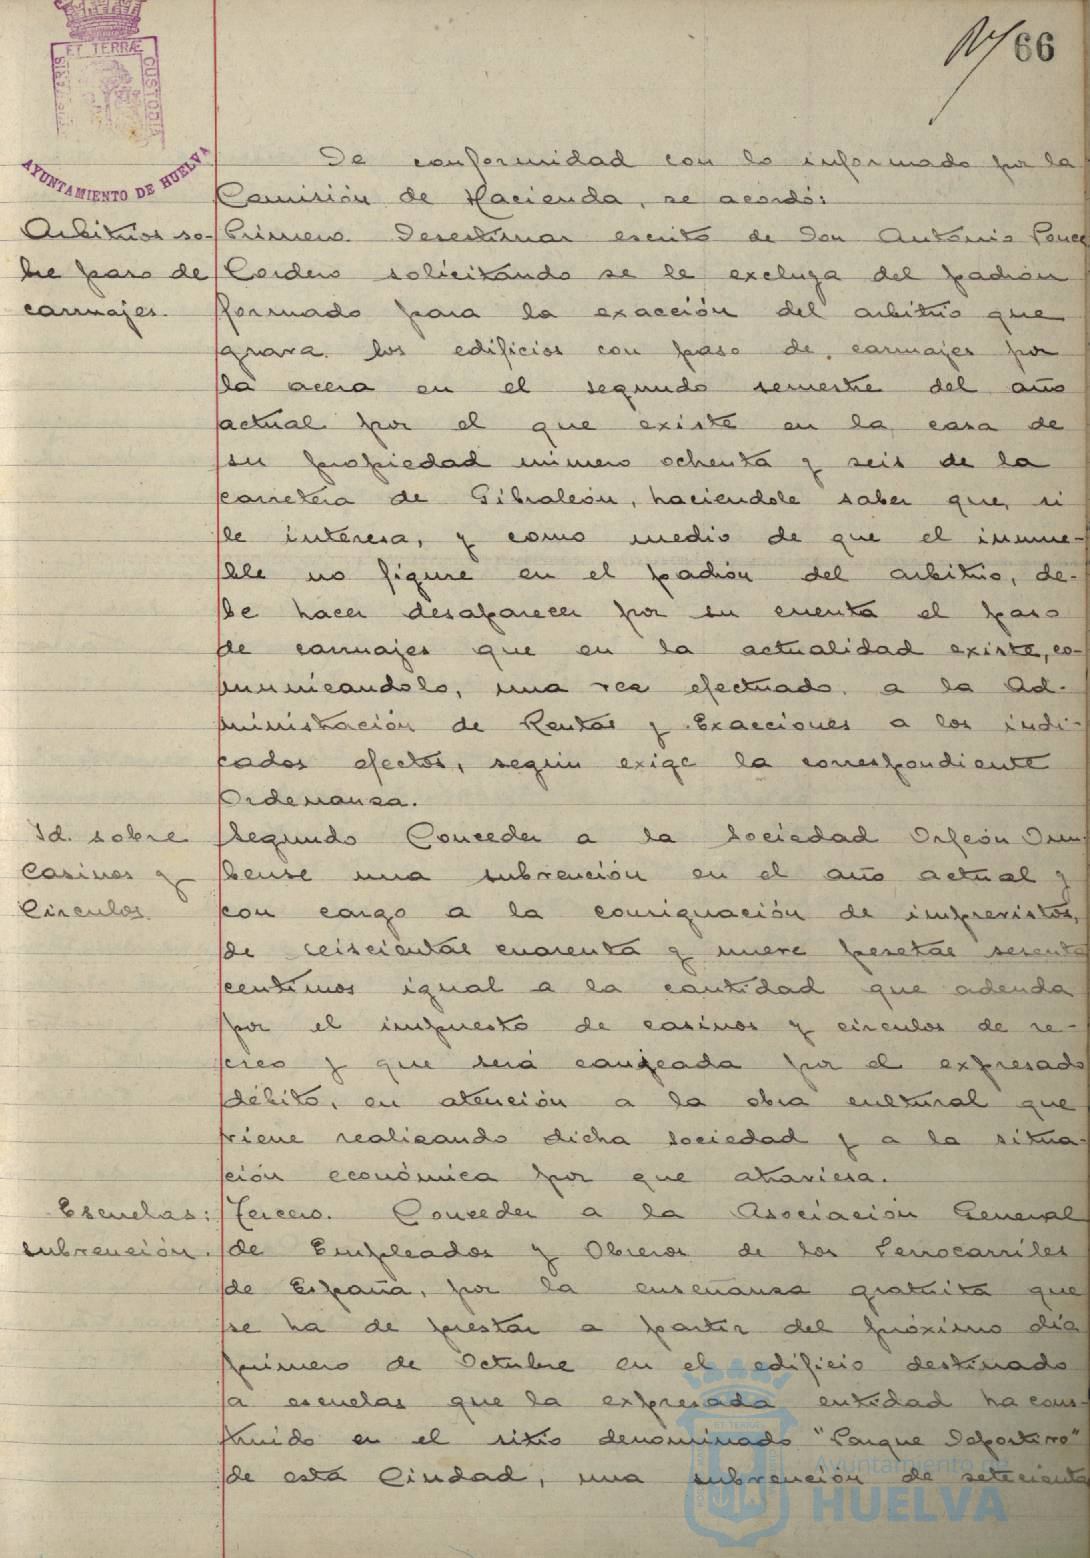 66
ET TERRÆ
CUSTODIA
AYUNTAMIENTO DE HUELVA
De conformidad con lo informado por la
Comisión de Hacienda, se acordó:
Arbitrios so-
bre paso de
carruajes.
Primero. Desestimar escrito de Don Antonio Ponce
Cordero solicitando se le excluya del padrón
formado para la exacción del arbitrio que
grava los edificios con paso de carruajes por
la acera en el segundo semestre del año
actual por el que existe en la casa de
su propiedad número ochenta y seis de la
carretera de Gibraleón, haciendole saber que, si
le interesa, y como medio de que el inmue-
ble no figure en el padrón del arbitrio, de-
be hacer desaparecer por su cuenta el paso
de carruajes que en la actualidad existe, co-
municandolo, una vez efectuado, a la Ad-
ministración de Rentas y Exacciones a los indi-
cados efectos, según exige la correspondiente
Ordenanza.
Id. sobre
Casinos y
Circulos.
Segundo Conceder a la Sociedad Orfeón Onu-
bense una subvención en el año actual y
con cargo a la consignación de imprevistos,
de seiscientas cuarenta y nueve pesetas sesenta
centimos igual a la cantidad que adeuda
por el impuesto de casinos y circulos de re-
creo y que será canjeada por el expresado
débito, en atención a la obra cultural que
viene realizando dicha sociedad y a la situa-
ción económica por que atraviesa.
Escuelas:
subvención.
Tercero. Conceder a la Asociación General
de Empleados y Obreros de los Ferrocarriles
de España, por la enseñanza gratuita que
se ha de prestar a partir del próximo día
primero de Octubre en el edificio destinado
a escuelas que la expresada entidad ha cons-
truido en el sitio denominado "Parque Deportivo"
de esta Ciudad, una subvención de setecientas
Ayuntamiento de
HUELVA